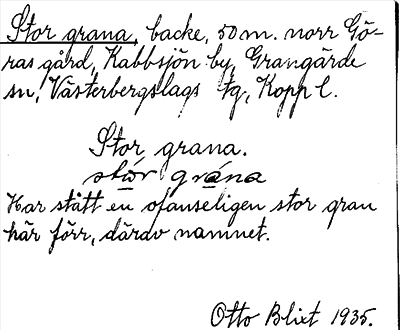 Stor grana, backe, 50 m. norr Gö-
ras gård, Kabbsjön by, Grangärde
sn, Västerbergslags fg, Kopp l.
Stor grana.
stór grána
Har stått en ofanseligen stor gran
här förr, därav namnet.
Otto Blixt 1935.